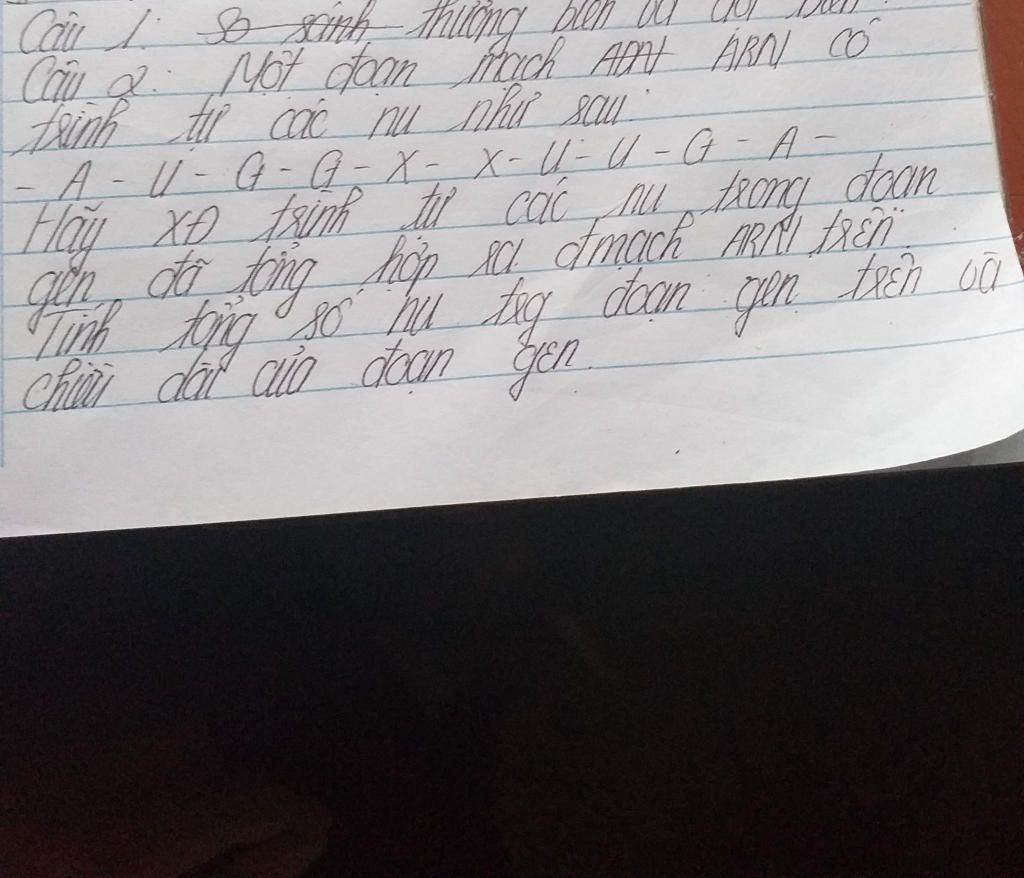 Câu 1: So sánh thường biến và đột biến.
Câu 2: Một đoạn mạch ADN ARN có
trình tự các nu như sau:
- A - U - G - G - X - X - U - U - G - A -
Hãy XĐ trình tự các nu trong đoạn
gen đã tổng hợp ra đmạch ARN trên.
Tính tổng số nu trg đoạn gen trên và
chiều dài của đoạn gen.